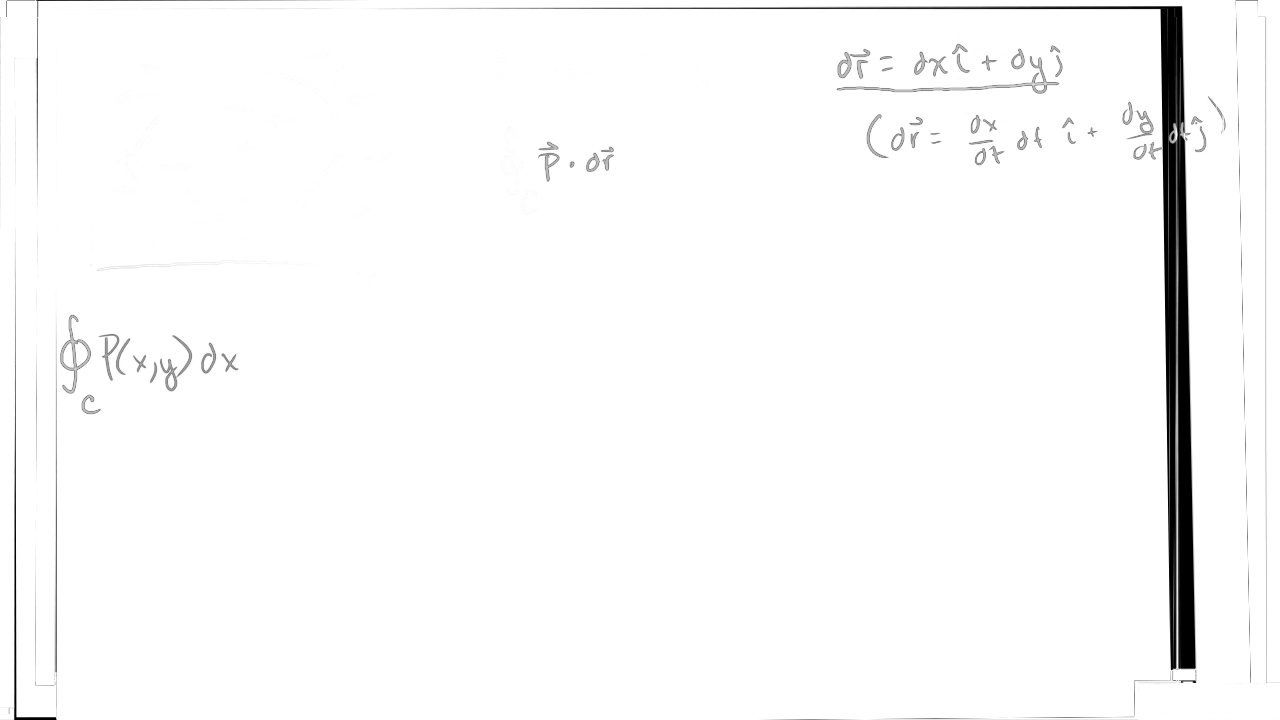 d\vec{r} = dx\hat{i} + dy\hat{j}
(d\vec{r} = \frac{dx}{dt} dt \hat{i} + \frac{dy}{dt} dt \hat{j})
\vec{P} \cdot d\vec{r}
\oint_C P(x,y) dx